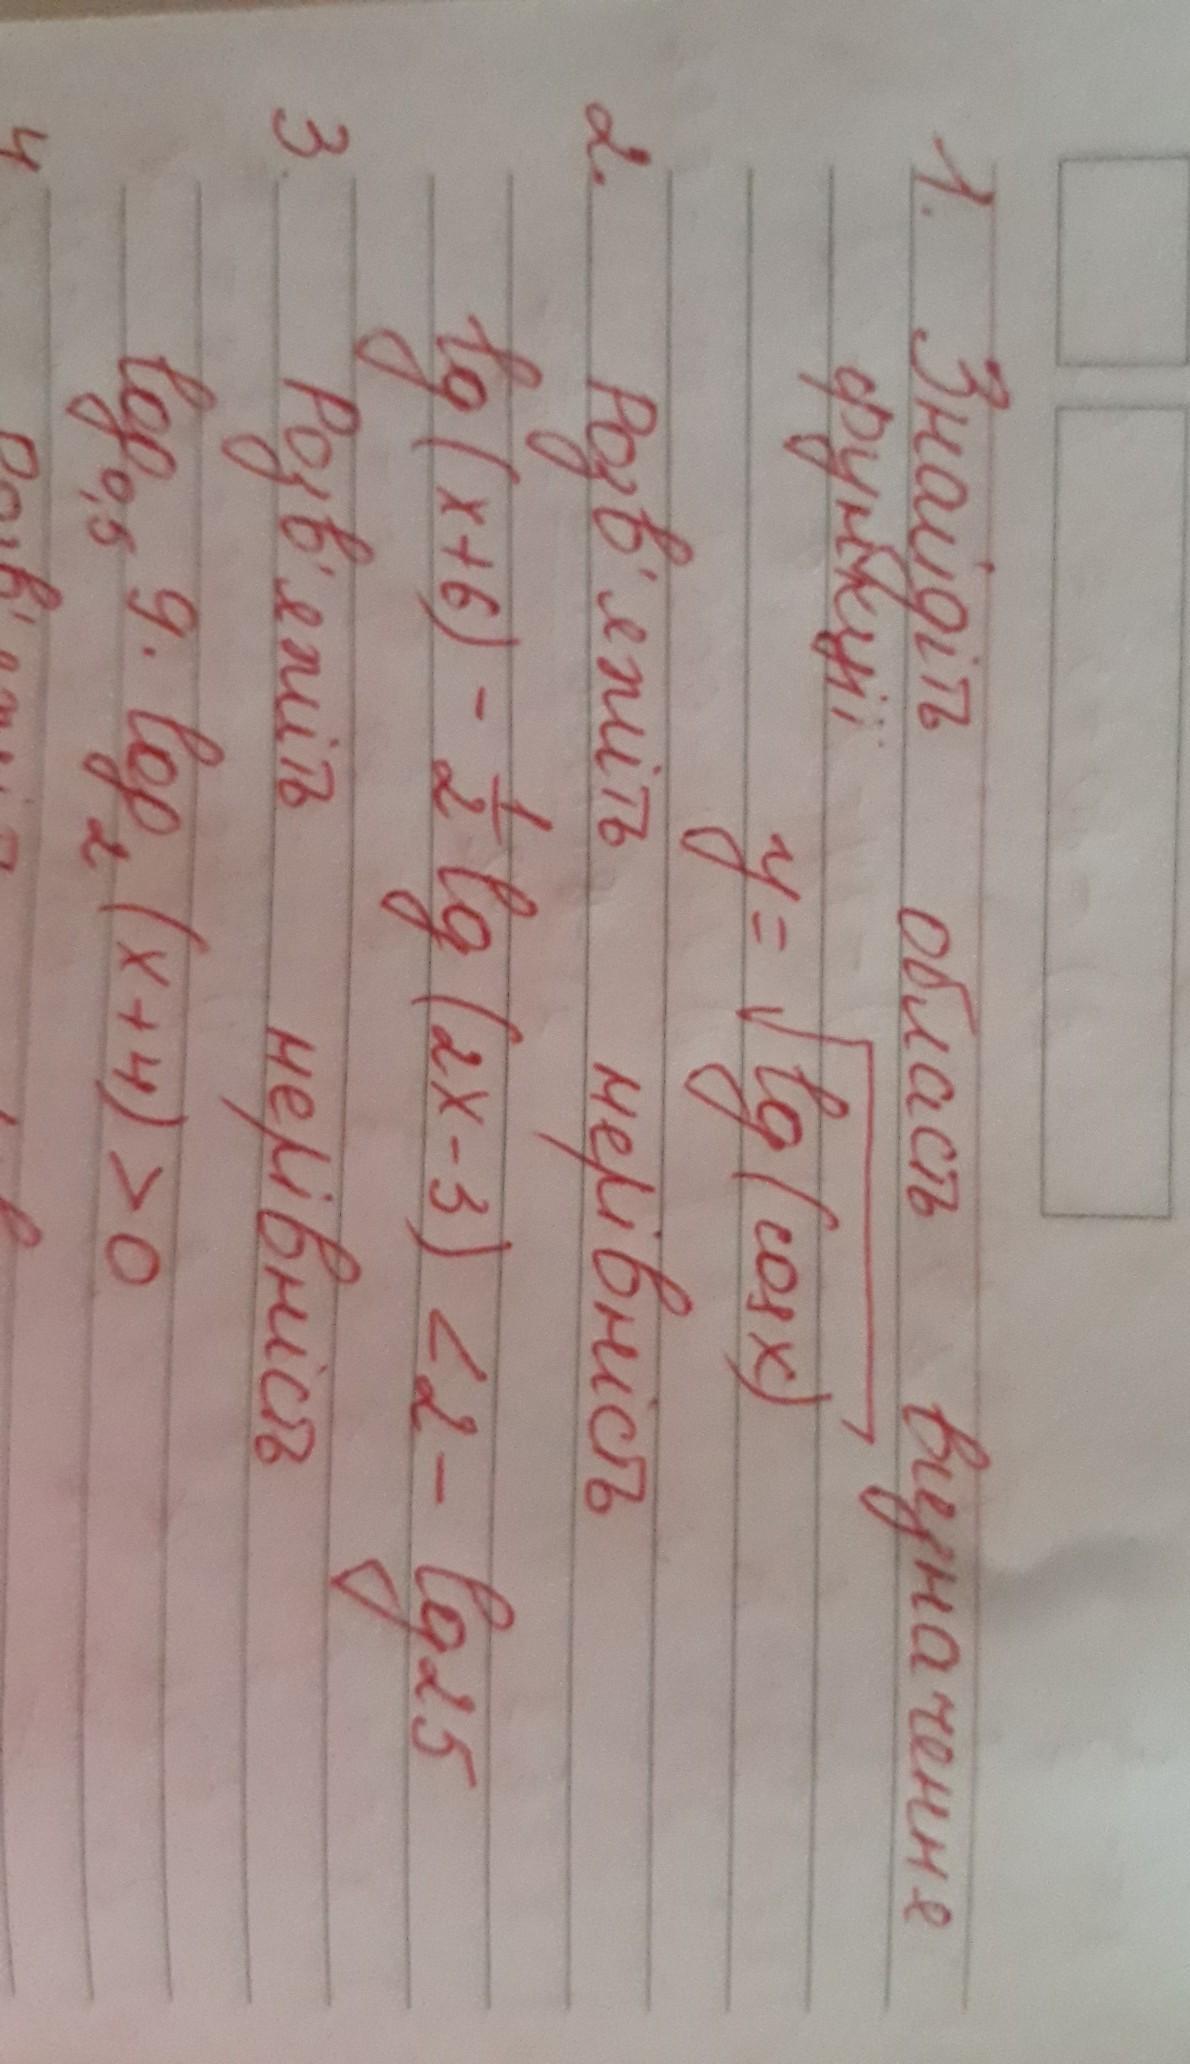 1. Знайдіть область визначення
функції
y = √lg(cosx)
2. Розв'яжіть нерівність
lg(x+6) - 1/2 lg(2x-3) < 2 - lg25
3. Розв'яжіть нерівність
log₀,₅ 9 · log₂(x+4) > 0
4